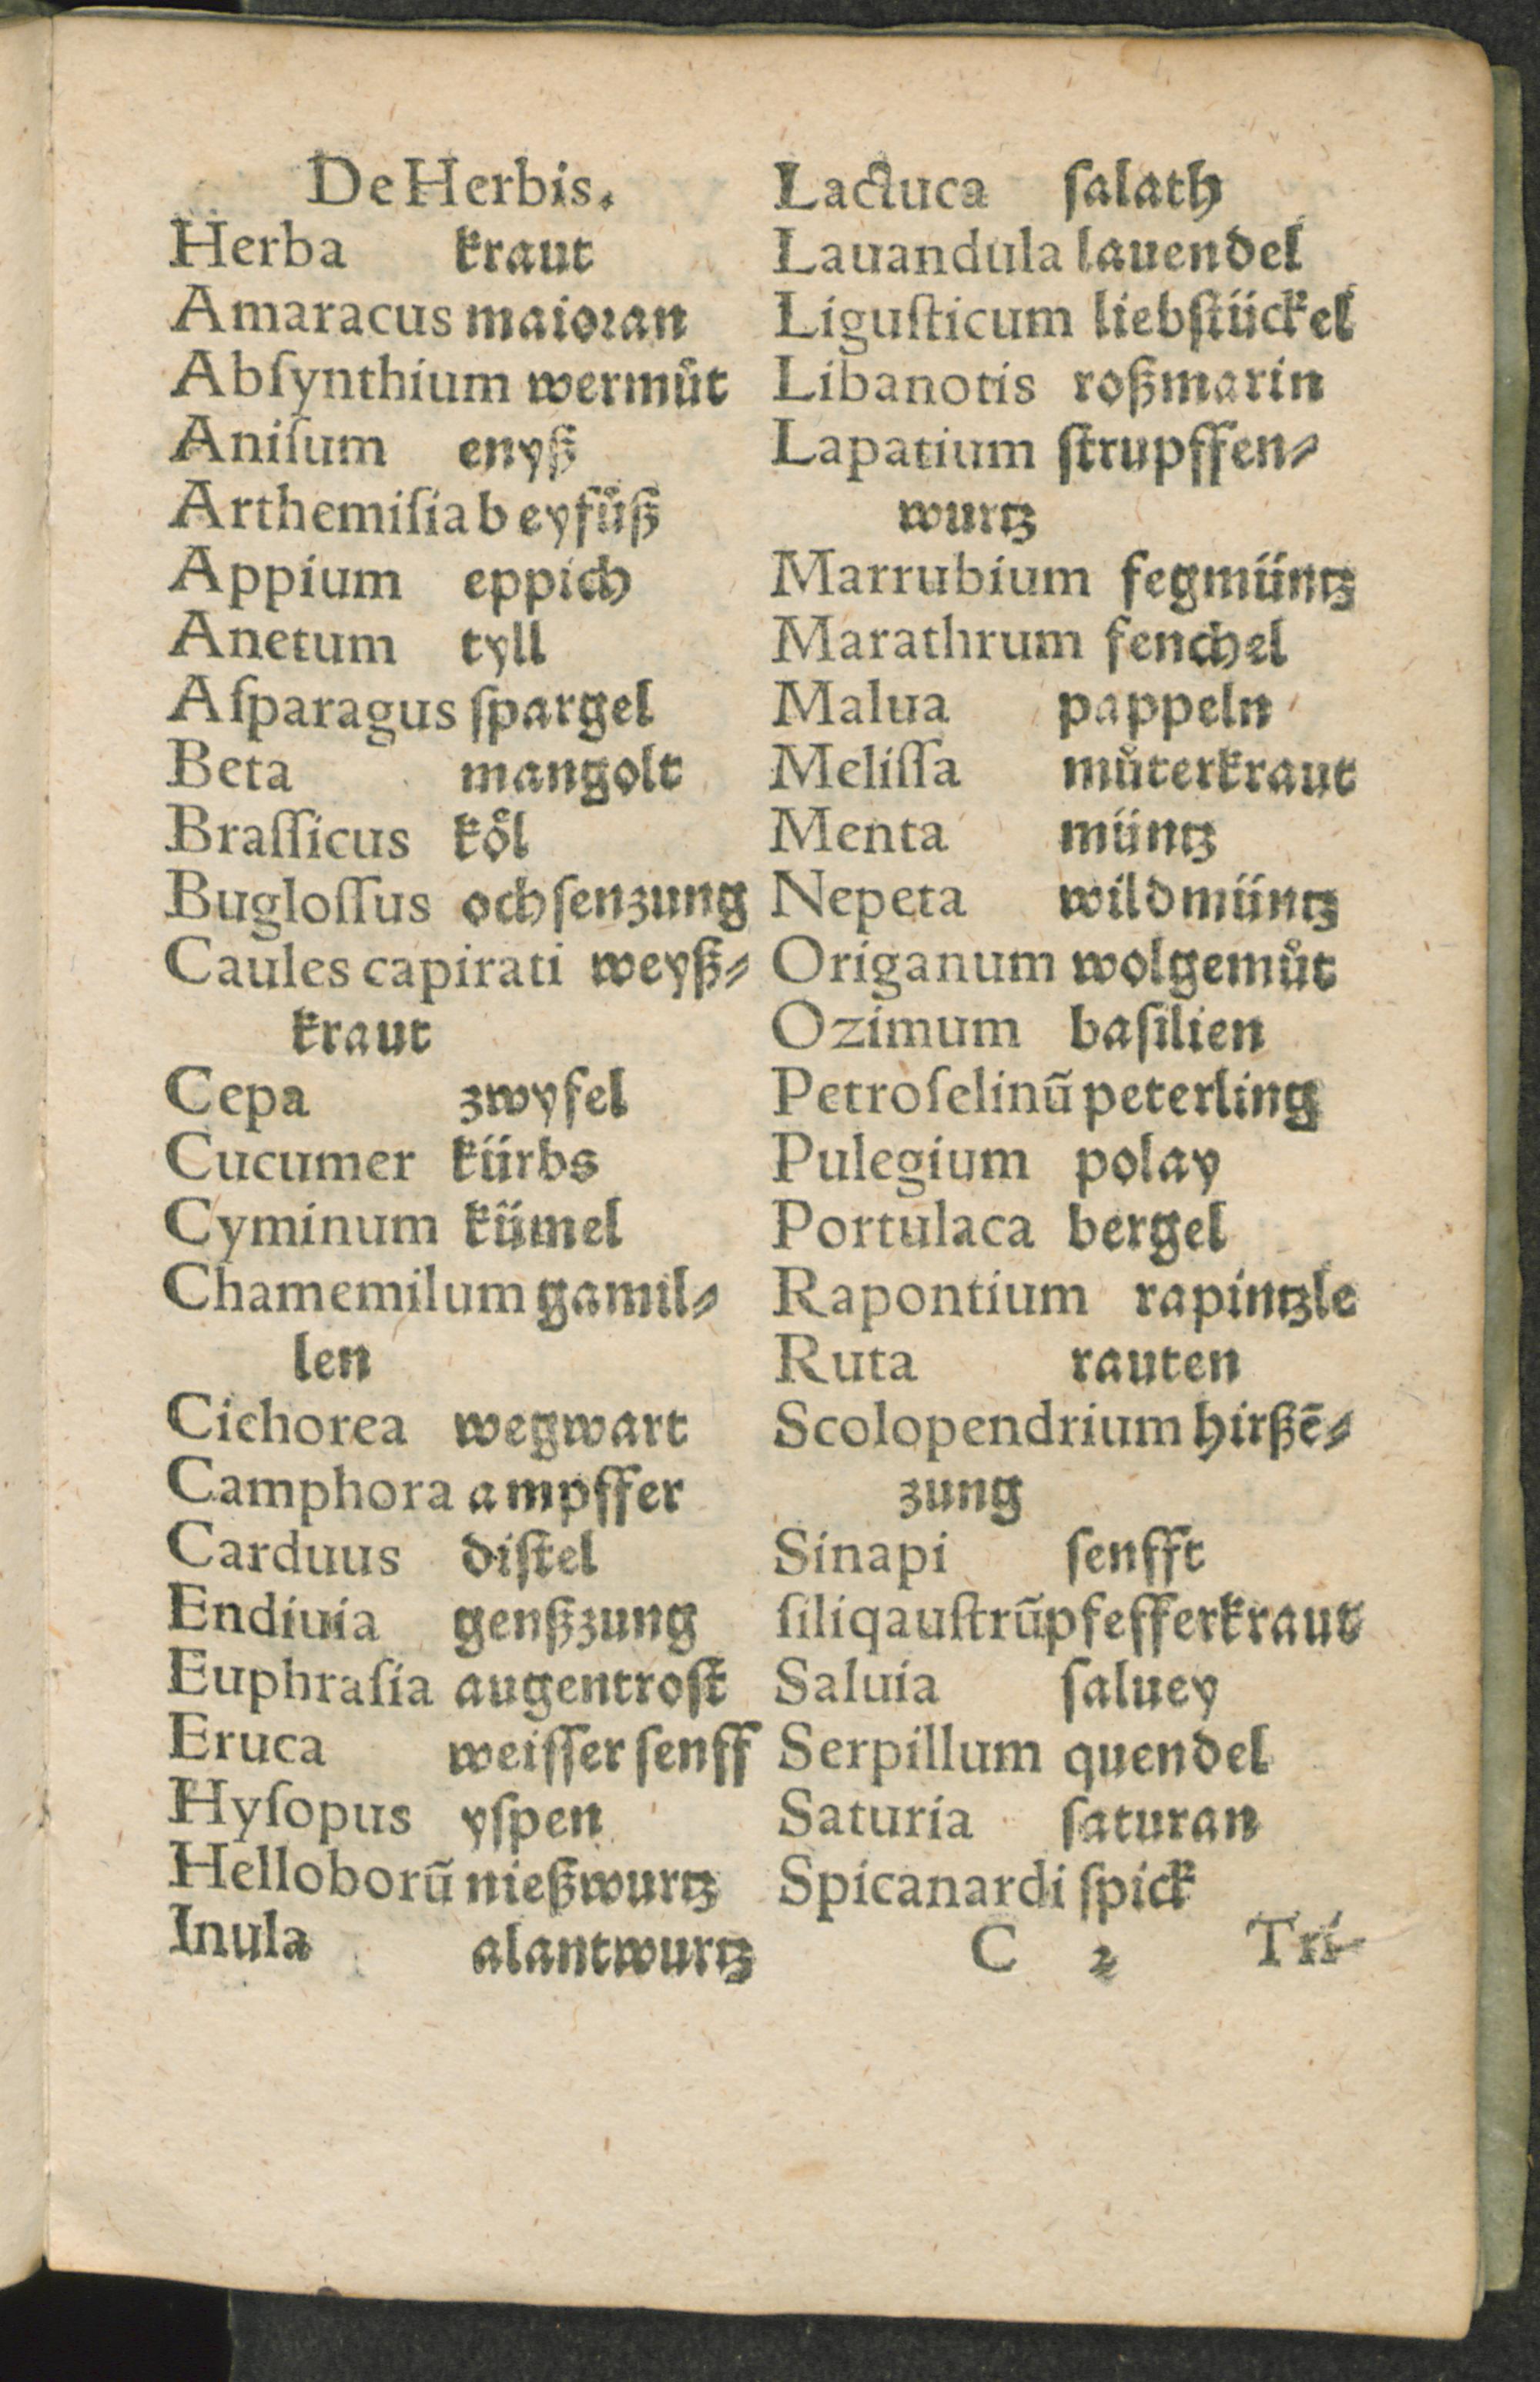 De Herbis.
Herba kraut
Amaracus maioꝛan
Abſynthium wermůt
Aniſum enyß
Arthemiſia beyfůß
Appium eppich
Anetum tyll
Aſparagus ſpargel
Beta mangolt
Braſſicus koͤl
Bugloſſus ochſenzung
Caules capitati weyß⸗
kraut
Cepa zwyfel
Cucumer kürbs
Cyminum kümel
Chamemilum gamil⸗
len
Cichorea wegwart
Camphora ampffer
Carduus diſtel
Endiuia genßzung
Euphraſia augentroſt
Eruca weiſſer ſenff
Hyſopus yſpen
Helloborū nießwurtz
Inula alantwurtz
Lactuca ſalath
Lauandula lauendel
Liguſticum liebſtückel
Libanotis roßmarin
Lapatium ſtrupffen⸗
wurtz
Marrubium fegmüntz
Marathrum fenchel
Malua pappeln
Meliſſa můterkraut
Menta müntz
Nepeta wildmüntz
Origanum wolgemůt
Ozimum baſilien
Petroſelinū peterling
Pulegium polay
Portulaca bergel
Rapontium rapintzle
Ruta rauten
Scolopendrium hirßē⸗
zung
Sinapi ſenfft
ſiliqauſtrū pfefferkraut
Saluia ſaluey
Serpillum quendel
Saturia ſaturan
Spicanardi ſpick
C 2 Tri-